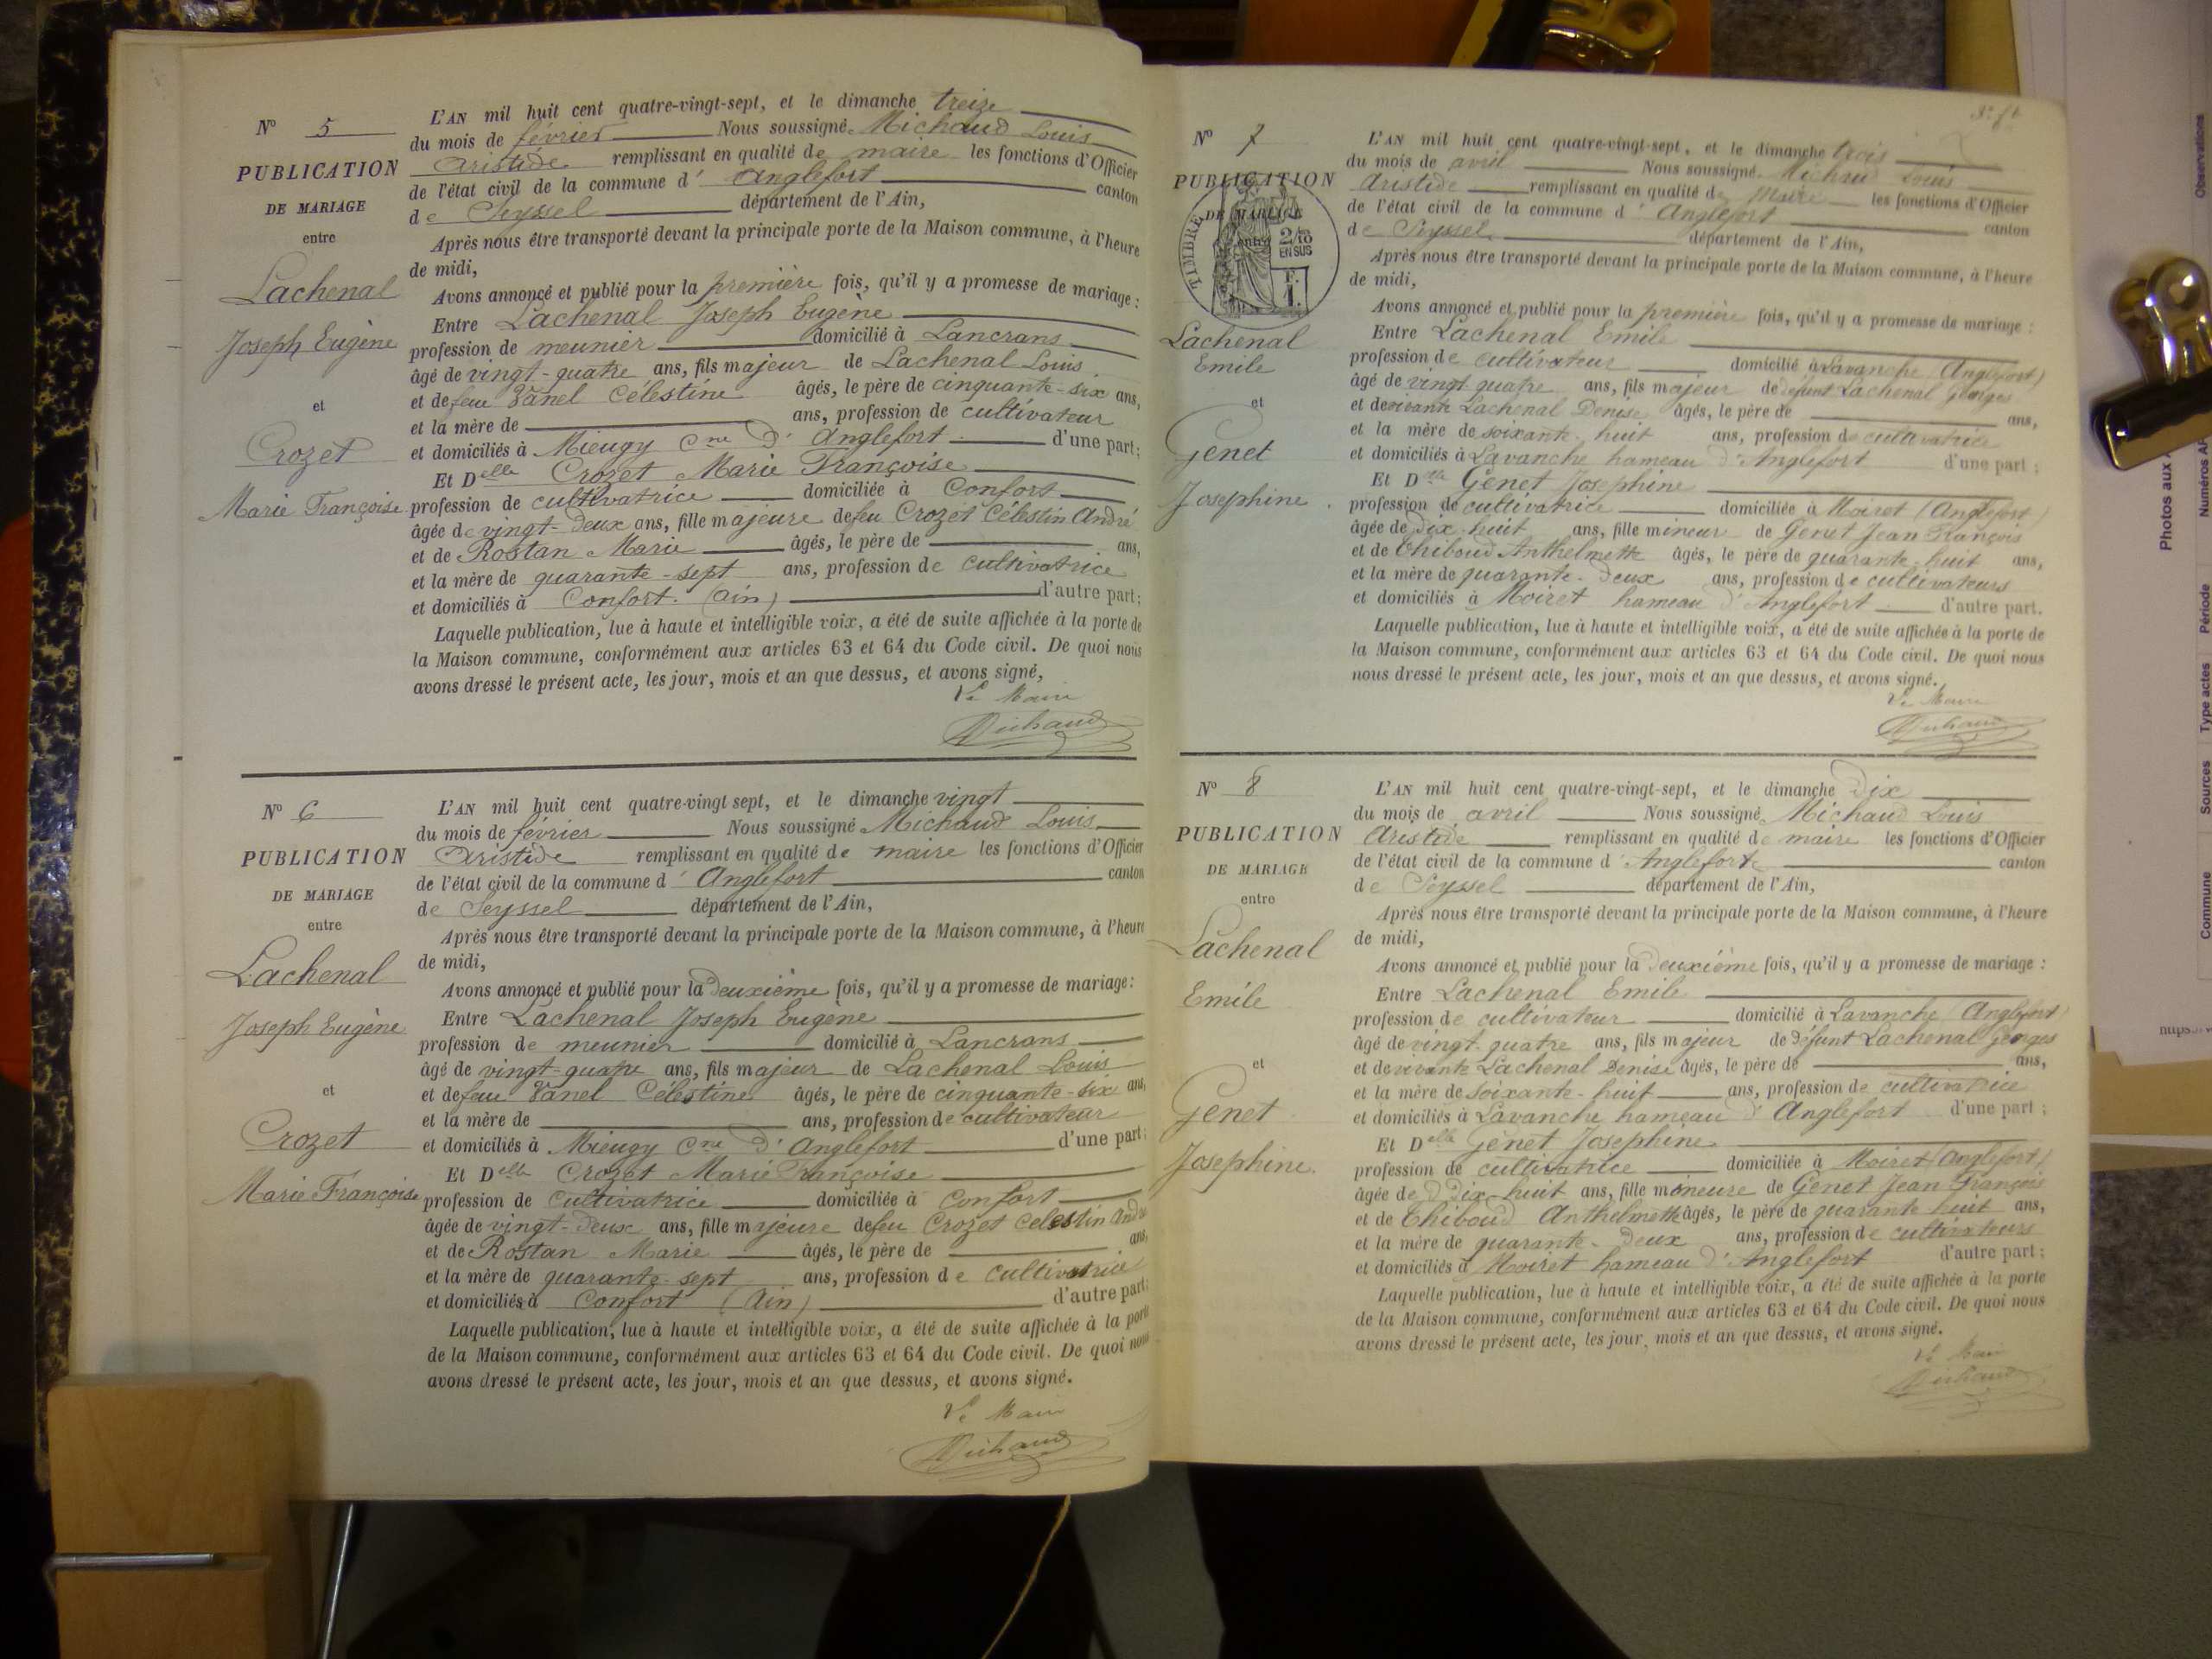 N° 5
PUBLICATION
DE MARIAGE
entre
Lachenal
Joseph Eugène
et
Crozet
Marie Françoise
L'AN mil huit cent quatre-vingt-sept, et le dimanche treize
du mois de février Nous soussigné Michaud Louis
Aristide remplissant en qualité de maire les fonctions d'Officier
de l'état civil de la commune d' Anglefort canton
de Seyssel département de l'Ain,
Après nous être transporté devant la principale porte de la Maison commune, à l'heure
de midi,
Avons annoncé et publié pour la première fois, qu'il y a promesse de mariage :
Entre Lachenal Joseph Eugène
profession de meunier domicilié à Lancrans
âgé de vingt-quatre ans, fils majeur de Lachenal Louis
et de feue Vanel Célestine âgés, le père de cinquante-six ans,
et la mère de ans, profession de cultivateur
et domiciliés à Mieugy Cne d' Anglefort d'une part;
Et Delle Crozet Marie Françoise
profession de cultivatrice domiciliée à Confort
âgée de vingt-deux ans, fille majeure de feu Crozet Célestin André
et de Rostan Marie âgés, le père de ans,
et la mère de quarante-sept ans, profession de cultivatrice
et domiciliés à Confort. (Ain) d'autre part;
Laquelle publication, lue à haute et intelligible voix, a été de suite affichée à la porte de
la Maison commune, conformément aux articles 63 et 64 du Code civil. De quoi nous
avons dressé le présent acte, les jour, mois et an que dessus, et avons signé,
Le Maire
Michaud
N° 6
PUBLICATION
DE MARIAGE
entre
Lachenal
Joseph Eugène
et
Crozet
Marie Françoise
L'AN mil huit cent quatre-vingt sept, et le dimanche vingt
du mois de février Nous soussigné Michaud Louis
Aristide remplissant en qualité de maire les fonctions d'Officier
de l'état civil de la commune d' Anglefort canton
de Seyssel département de l'Ain,
Après nous être transporté devant la principale porte de la Maison commune, à l'heure
de midi,
Avons annoncé et publié pour la deuxième fois, qu'il y a promesse de mariage:
Entre Lachenal Joseph Eugène
profession de meunier domicilié à Lancrans
âgé de vingt-quatre ans, fils majeur de Lachenal Louis
et de feue Vanel Célestine âgés, le père de cinquante-six ans,
et la mère de ans, profession de cultivateur
et domiciliés à Mieugy Cne d' Anglefort d'une part;
Et Delle Crozet Marie Françoise
profession de Cultivatrice domiciliée à Confort
âgée de vingt-deux ans, fille majeure de feu Crozet Celestin André
et de Rostan Marie âgés, le père de ans,
et la mère de quarante-sept ans, profession de cultivatrice
et domiciliés à Confort (Ain) d'autre part;
Laquelle publication, lue à haute et intelligible voix, a été de suite affichée à la porte
de la Maison commune, conformément aux articles 63 et 64 du Code civil. De quoi nous
avons dressé le présent acte, les jour, mois et an que dessus, et avons signé.
Le Maire
Michaud
N° 7
PUBLICATION
DE MARIAGE
entre
TIMBRE
2/10
EN SUS
F.
1.
Lachenal
Emile
et
Genet
Josephine
L'AN mil huit cent quatre-vingt-sept, et le dimanche trois
du mois de avril Nous soussigné Michaud Louis
Aristide remplissant en qualité de Maire les fonctions d'Officier
de l'état civil de la commune d' Anglefort canton
de Seyssel département de l'Ain,
Après nous être transporté devant la principale porte de la Maison commune, à l'heure
de midi,
Avons annoncé et publié pour la première fois, qu'il y a promesse de mariage :
Entre Lachenal Emile
profession de cultivateur domicilié à Lavanche (Anglefort)
âgé de vingt quatre ans, fils majeur de défunt Lachenal Georges
et de vivante Lachenal Denise âgés, le père de ans,
et la mère de soixante-huit ans, profession de cultivatrice
et domiciliés à Lavanche hameau d'Anglefort d'une part ;
Et Delle Genet Josephine
profession de cultivatrice domiciliée à Moiret (Anglefort)
âgée de dix-huit ans, fille mineure de Genet Jean François
et de Thiboud Anthelmette âgés, le père de quarante-huit ans,
et la mère de quarante-deux ans, profession de cultivateurs
et domiciliés à Moiret hameau d'Anglefort d'autre part.
Laquelle publication, lue à haute et intelligible voix, a été de suite affichée à la porte de
la Maison commune, conformément aux articles 63 et 64 du Code civil. De quoi nous
nous dressé le présent acte, les jour, mois et an que dessus, et avons signé.
Le Maire
Michaud
N° 8
PUBLICATION
DE MARIAGE
entre
Lachenal
Emile
et
Genet
Josephine.
L'AN mil huit cent quatre-vingt-sept, et le dimanche dix
du mois de avril Nous soussigné Michaud Louis
Aristide remplissant en qualité de maire les fonctions d'Officier
de l'état civil de la commune d' Anglefort canton
de Seyssel département de l'Ain,
Après nous être transporté devant la principale porte de la Maison commune, à l'heure
de midi,
Avons annoncé et publié pour la deuxième fois, qu'il y a promesse de mariage :
Entre Lachenal Emile
profession de cultivateur domicilié à Lavanche (Anglefort)
âgé de vingt-quatre ans, fils majeur de défunt Lachenal Georges
et de vivante Lachenal Denise âgés, le père de ans,
et la mère de soixante-huit ans, profession de cultivatrice
et domiciliés à Lavanche hameau d' Anglefort d'une part ;
Et Delle Genet Josephine
profession de cultivatrice domiciliée à Moiret (Anglefort)
âgée de Dix-huit ans, fille mineure de Genet Jean François
et de Thiboud Anthelmette âgés, le père de quarante huit ans,
et la mère de quarante-deux ans, profession de cultivateurs
et domiciliés à Moiret hameau d'Anglefort d'autre part ;
Laquelle publication, lue à haute et intelligible voix, a été de suite affichée à la porte
de la Maison commune, conformément aux articles 63 et 64 du Code civil. De quoi nous
avons dressé le présent acte, les jour, mois et an que dessus, et avons signé.
Le Maire
Michaud
Commune
Sources
Type actes
Période
Numéros
Observations
Photos aux